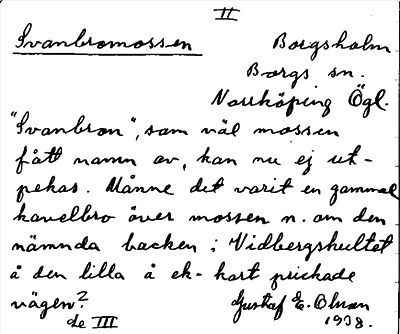 II
Svanbromossen Borgsholm
Borgs sn.
Norrköping Ögl.
"Svanbron", som väl mossen
fått namn av, kan nu ej ut-
pekas. Månne det varit en gammal
kavelbro över mossen n. om den
nämnda backen i Vidbergshultet
å den lilla å ek-kart prickade
vägen? Gustaf E. Olsson
de III 1938.